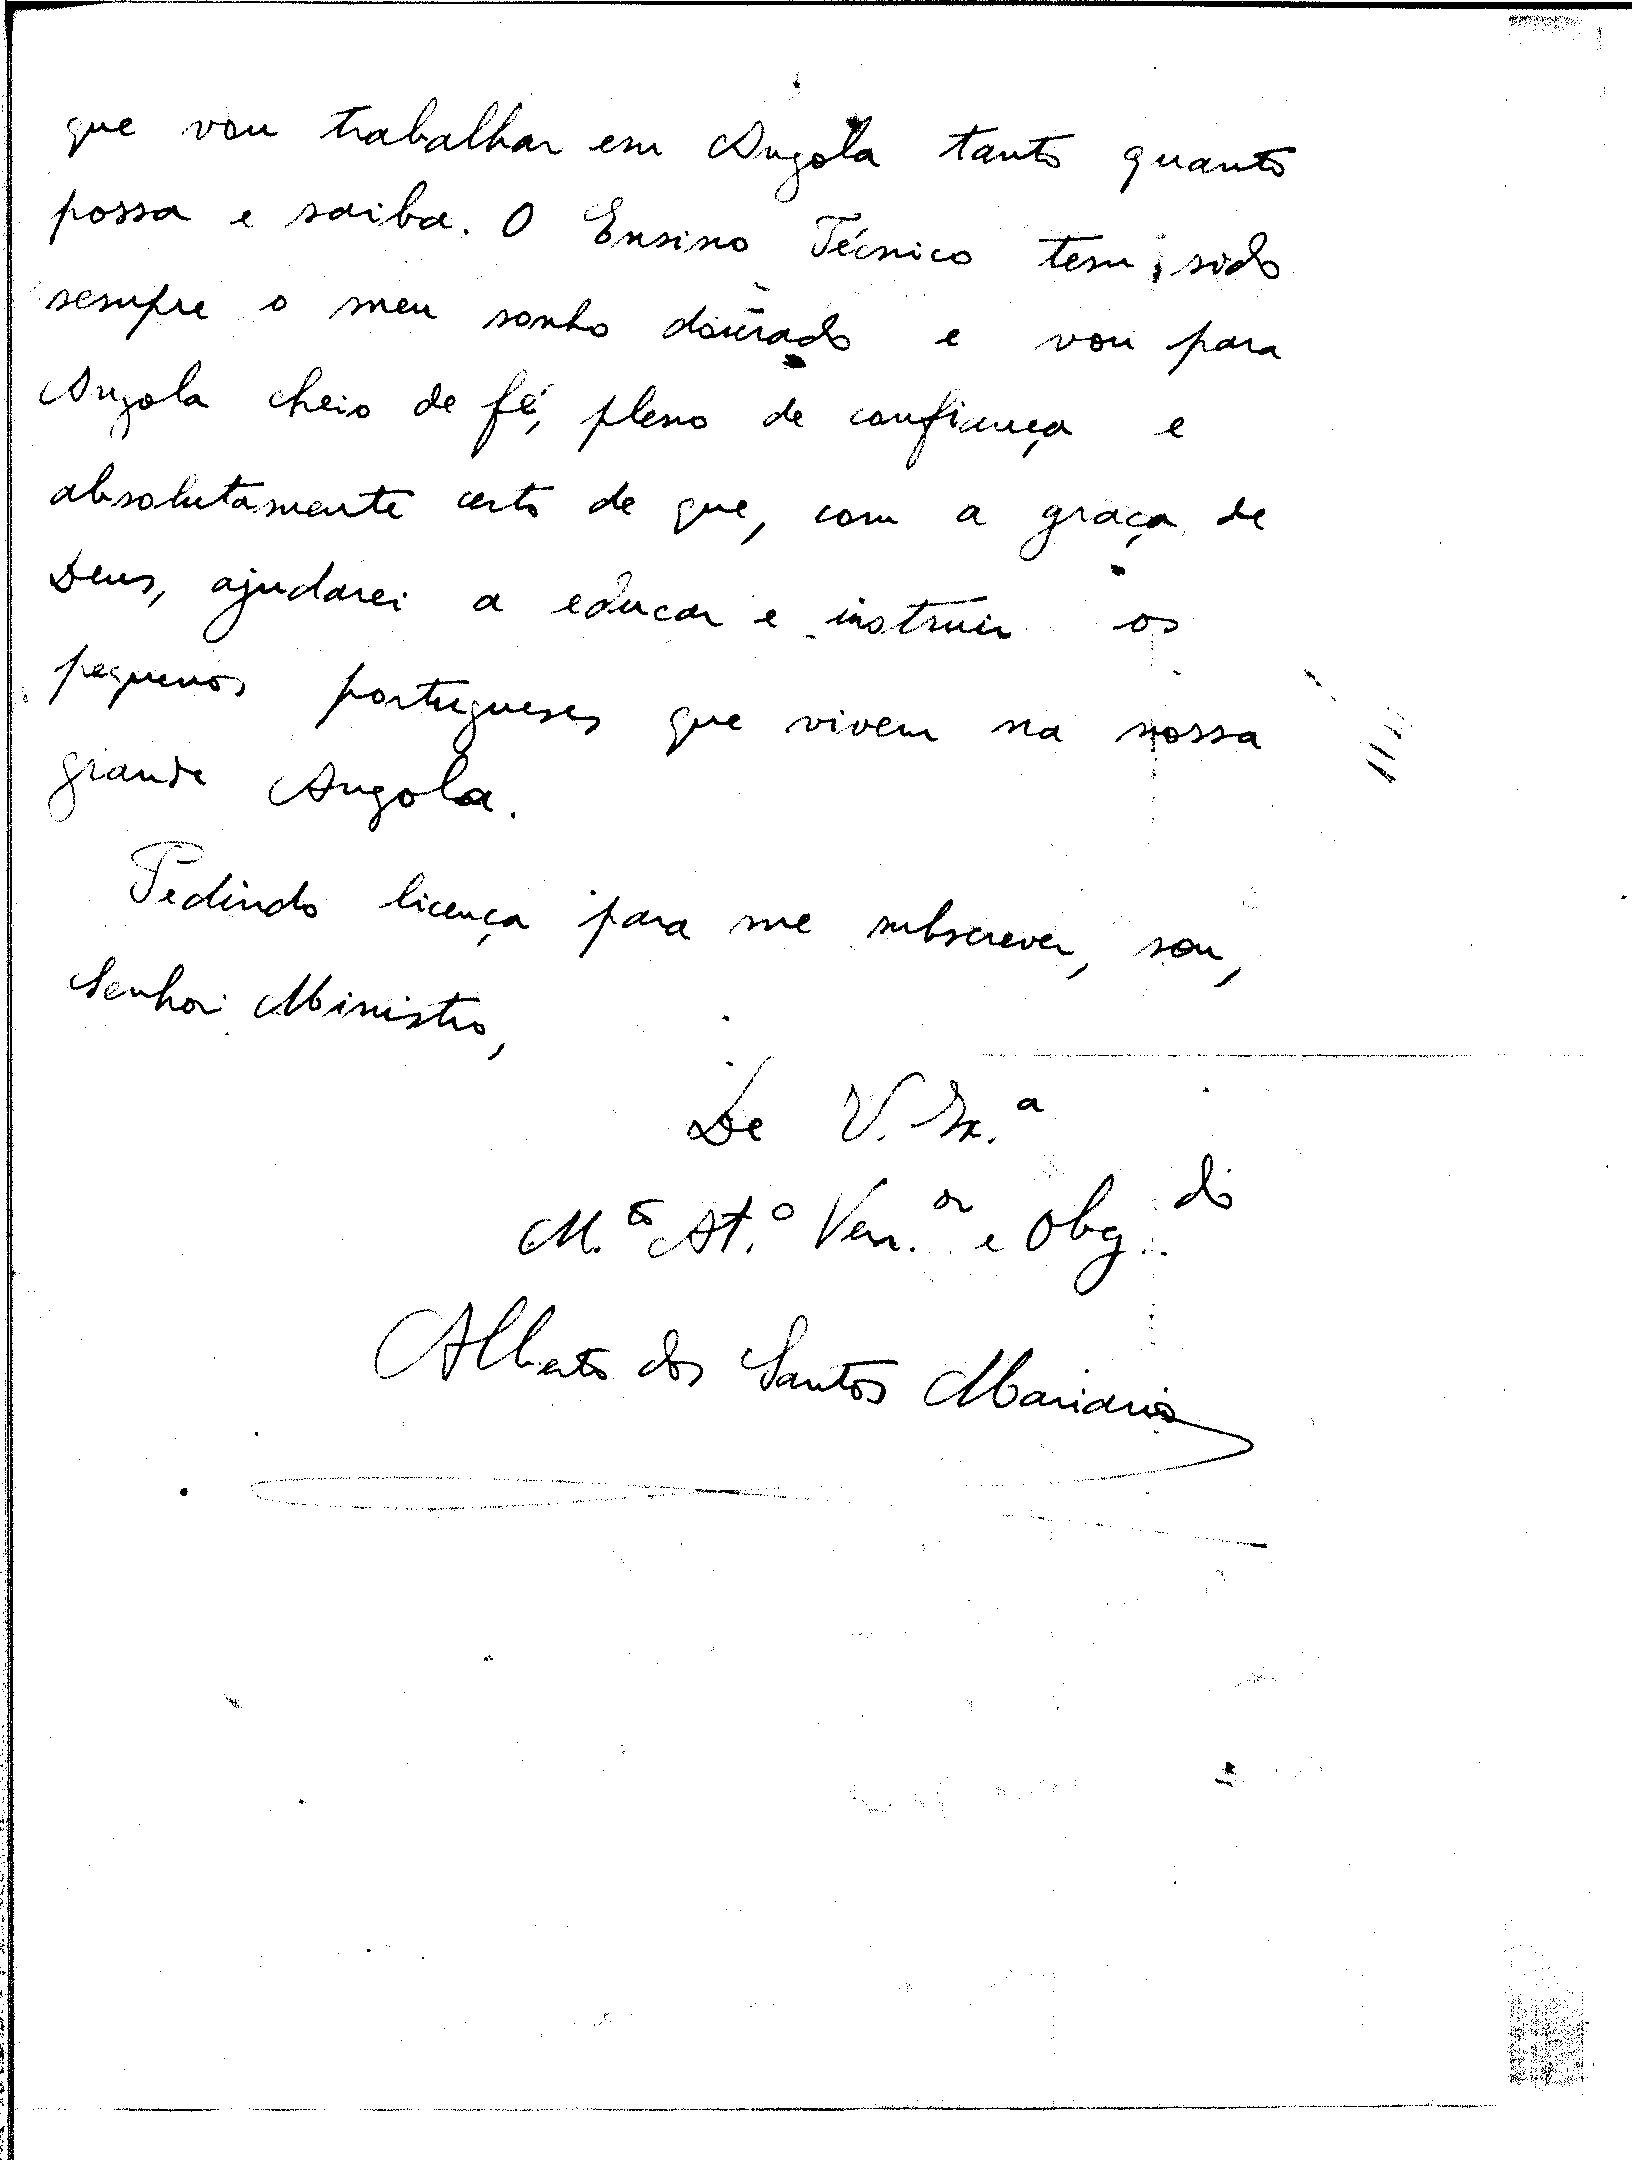 que vou trabalhar em Angola tanto quanto
possa e saiba. O Ensino Técnico tem sido
sempre o meu sonho dourado e vou para
Angola cheio de fé, pleno de confiança e
absolutamente certo de que, com a graça de
Deus, ajudarei a educar e instruir os
pequenos portugueses que vivem na nossa
grande Angola.
Pedindo licença para me subscrever, sou,
Senhor Ministro,
De V. Ex.ª
M.to At.º Ven.or e Obg.do
Alberto dos Santos Mariano